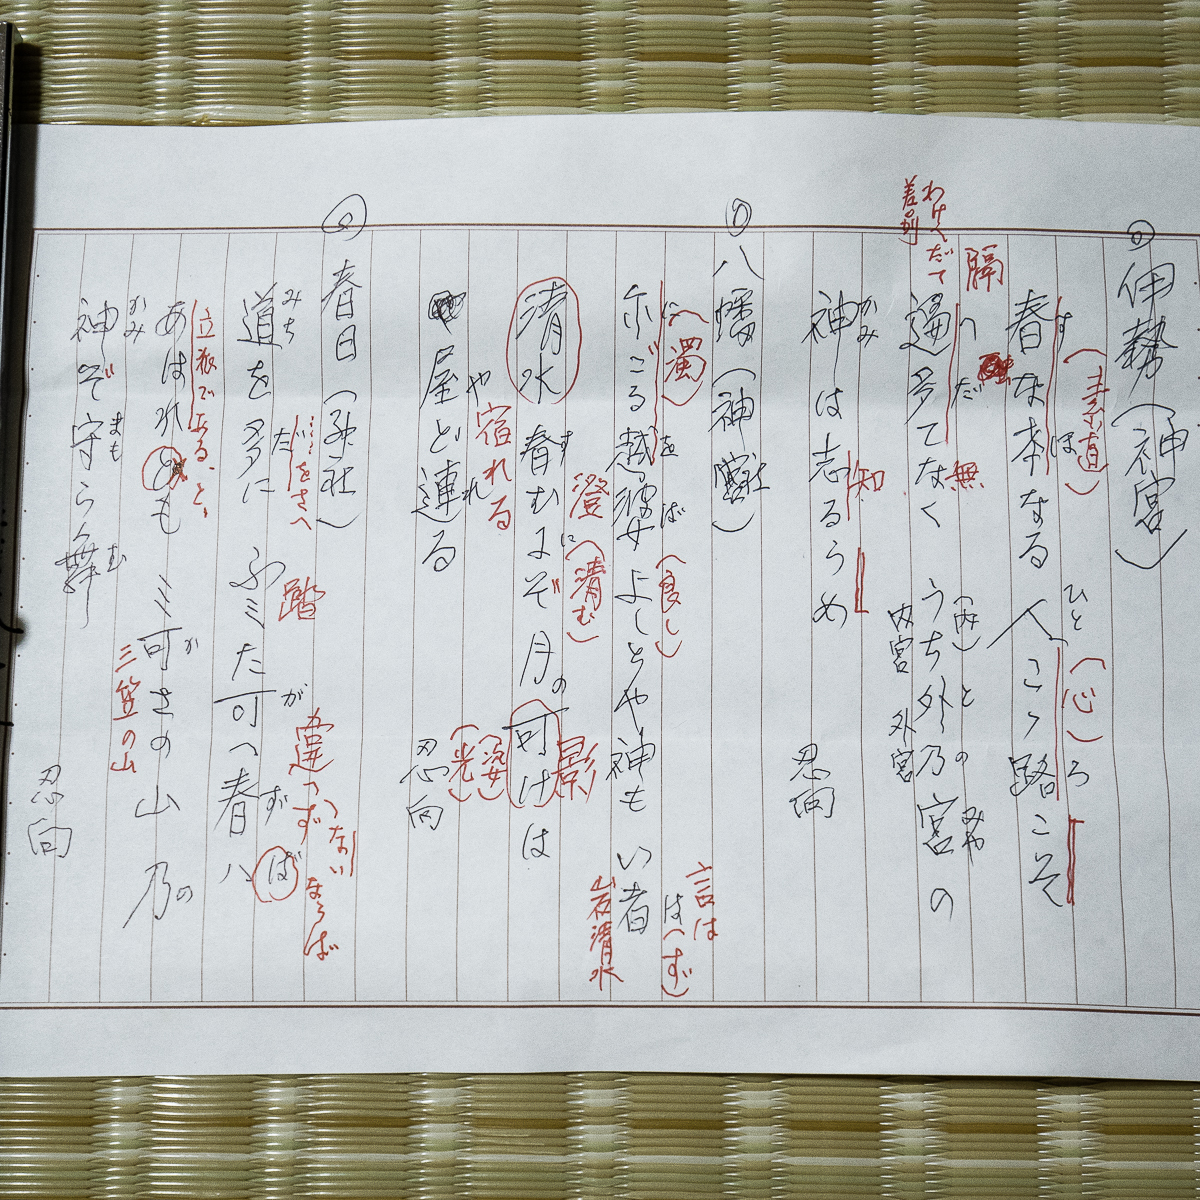 伊勢(神宮)
す(素直)ほ ひと(心)ろ
春な本なる 人こゝ路こそ
隔 へだ 無 (内)との みや
遍多てなく うち外乃宮の
内宮 外宮
わけへだて
差別
かみ 知
神は志るらめ
忍向
八幡(神社)
に(濁) をば(良し) はへ(ず)
言は
尓ごる越波 よしとや神も い者
岩清水
澄 に(清む) の 影
清水 春むにぞ月 可けは
す
(姿)
(光)
や 宿れる れ
屋ど連る
忍向
春日(神社)
みち だにをさへ 踏 が 違へず(ないならば
道を多に ふミた可へ春ハ ずば
立派である、と、 か の
あはれとも ミ可さの山 乃
三笠の山
かみ まも む
神ぞ守らん舞
忍向